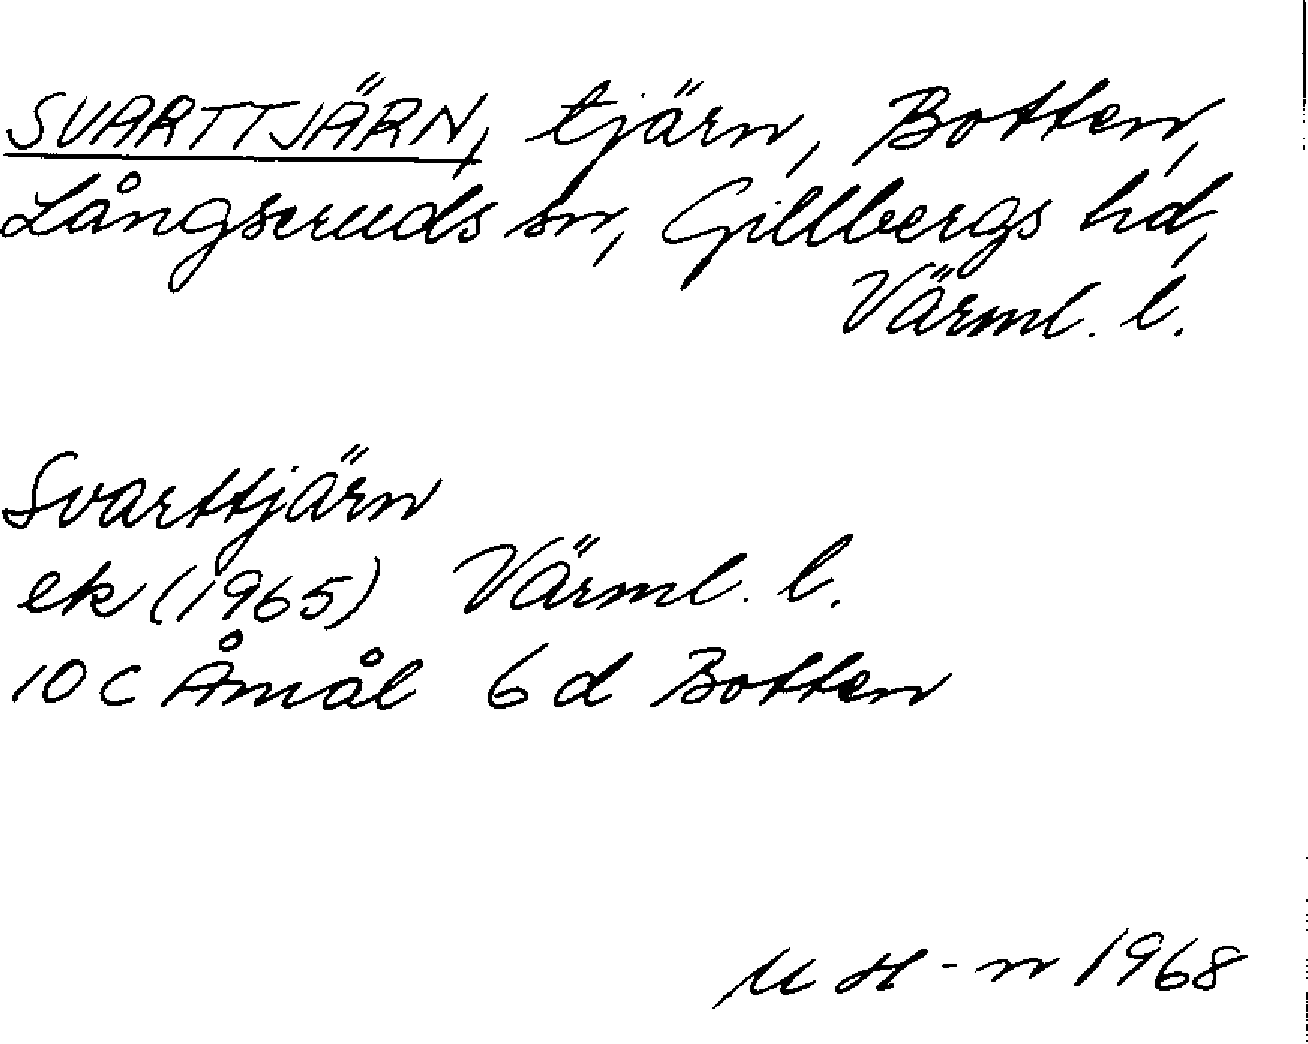 SVARTTJÄRN, tjärn, Botten,
Långseruds sn, Gillbergs hd,
Värml. l.
Svarttjärn
ek (1965) Värml. l.
10 C Åmål 6 d Botten
M H-n 1968